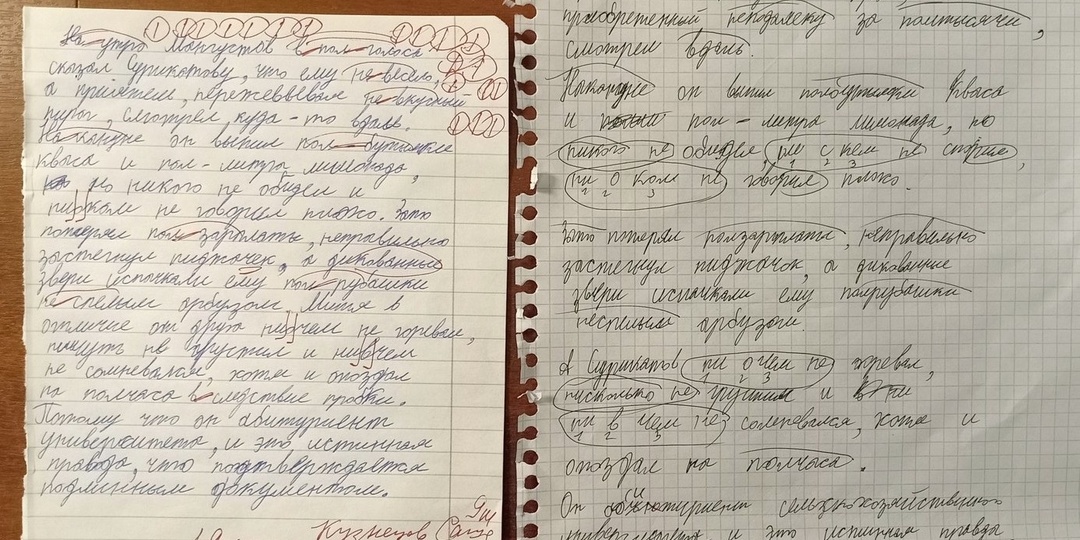 На утро Мангустов в пол-голоса
сказал Сурикатову, что ему не весело,
а приятель, пережёвывая не вкусный
пирог, смотрел, куда-то вдаль.
Накануне он выпил пол-бутылки
кваса и пол-литра лимонада,
но никого не обидел и
ниокам не говорил плохо. Зато
потерял пол-зарплаты, неправильно
застегнул пиджочек, а диковинные
звери испачкали ему пол-рубашки
не спелым арбузом. Митя в
отличие от друга ниочем не горевал,
ничуть не грустил и нивчем
не сомневался, хотя и опоздал
на полчаса в следствие пробки.
Потому что он абитуриент
университета, и это истинная
правда, что подтверждается
подлинным документом.
Кузнецов Саша
приобретенный неподалёку за полтысячи,
смотрел вдаль.
Накануне он выпил полбутылки кваса
и пол-литра лимонада, но
никого не обидел, ни с кем не спорил,
ни о ком не говорил плохо.
Зато потерял ползарплаты, неправильно
застегнул пиджачок, а диковинные
звери испачкали ему полрубашки
неспелым арбузом.
А Сурикатов ни о чем не горевал,
нисколько не грустил и ни
ни в чем не сомневался, хотя и
опоздал на полчаса.
Он абитуриент сельскохозяйственного
университета, и это истинная правда